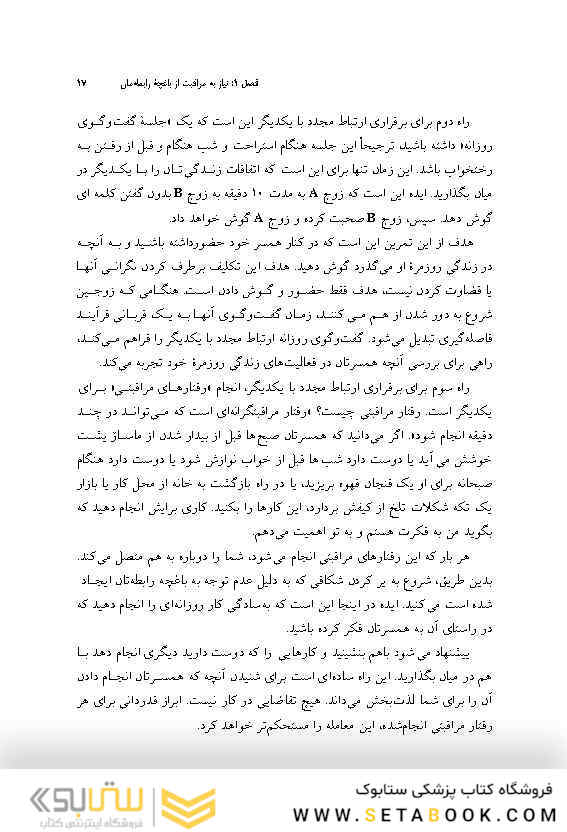 فصل ۱: نیاز به مراقبت از باغچهٔ رابطه‌مان ۱۷
راه دوم برای برقراری ارتباط مجدد با یکدیگر این است که یک «جلسهٔ گفت‌وگوی
روزانه» داشته باشید. ترجیحاً این جلسه هنگام استراحت و شب هنگام و قبل از رفتن به
رختخواب باشد. این زمان تنها برای این است که اتفاقات زندگی‌تان را با یکدیگر در
میان بگذارید. ایده این است که زوج A به مدت ۱۰ دقیقه به زوج B بدون گفتن کلمه ای
گوش دهد. سپس، زوج B صحبت کرده و زوج A گوش خواهد داد.
هدف از این تمرین این است که در کنار همسر خود حضورداشته باشید و به آنچه
در زندگی روزمرهٔ او می‌گذرد گوش دهید. هدف این تکلیف برطرف کردن نگرانی آنها
یا قضاوت کردن نیست، هدف فقط حضور و گوش دادن است. هنگامی که زوجین
شروع به دور شدن از هم می کنند، زمان گفت‌وگوی آنها به یک قربانی فرآیند
فاصله‌گیری تبدیل می‌شود. گفت‌وگوی روزانه ارتباط مجدد با یکدیگر را فراهم می‌کند،
راهی برای بررسی آنچه همسرتان در فعالیت‌های زندگی روزمرهٔ خود تجربه می‌کند.
راه سوم برای برقراری ارتباط مجدد با یکدیگر، انجام «رفتارهای مراقبتی» برای
یکدیگر است. رفتار مراقبتی چیست؟ «رفتار مراقبتگرانه‌ای است که می‌تواند در چند
دقیقه انجام شود». اگر می‌دانید که همسرتان صبح‌ها قبل از بیدار شدن از ماساژ پشت
خوشش می آید یا دوست دارد شب‌ها قبل از خواب نوازش شود یا دوست دارد هنگام
صبحانه برای او یک فنجان قهوه بریزید، یا در راه بازگشت به خانه از محل کار یا بازار
یک تکه شکلات تلخ از کیفش بردارد، این کارها را بکنید. کاری برایش انجام دهید که
بگوید من به فکرت هستم و به تو اهمیت می‌دهم.
هر بار که این رفتارهای مراقبتی انجام می‌شود، شما را دوباره به هم متصل می‌کند.
بدین طریق، شروع به پر کردن شکافی که به دلیل عدم توجه به باغچه رابطه‌تان ایجاد
شده است می‌کنید. ایده در اینجا این است که به‌سادگی کار روزانه‌ای را انجام دهید که
در راستای آن به همسرتان فکر کرده باشید.
پیشنهاد می‌شود باهم بنشینید و کارهایی را که دوست دارید دیگری انجام دهد با
هم در میان بگذارید. این راه ساده‌ای است برای شنیدن آنچه که همسرتان انجام دادن
آن را برای شما لذت‌بخش می‌داند. هیچ تقاضایی در کار نیست. ابراز قدردانی برای هر
رفتار مراقبتی انجام‌شده، این معامله را مستحکم‌تر خواهد کرد.
فروشگاه کتاب پزشکی ستابوک
WWW.SETABOOK.COM
ستابوک
فروشگاه اینترنتی کتاب